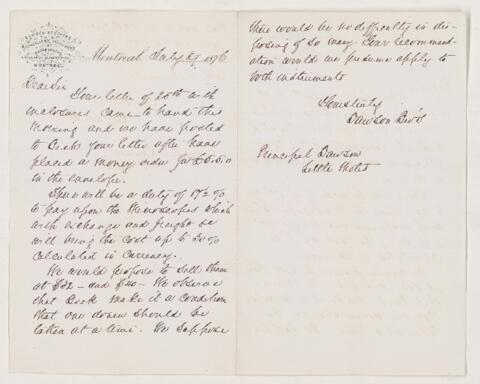 DAWSON BROTHERS
MONTREAL
Montreal July 1876
Dear Sir
Your letter of 20th with
enclosures came to hand this
morning and we have posted
to Beck your letter after having
placed a money order for £5.5.0
in the envelope.
There will be a duty of 17½ %
to pay upon the Microscopes which
with exchange and freight &c
will bring the cost up to 30%
calculated in currency.
We would propose to sell them
at $32 - and $40 - We observe
that Beck make it a condition
that one dozen should be
taken at a time. We suppose
there would be no difficulty in dis-
posing of so many Your recommend-
ation would we presume apply to
both instruments
Yours truly
Dawson Bro's
Principal Dawson
Little Metis